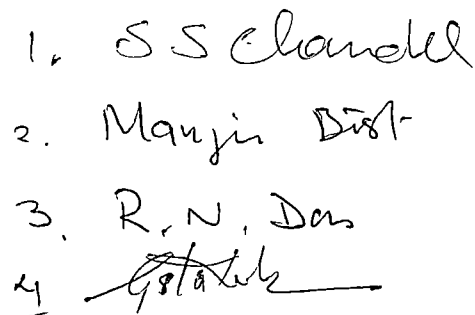 1. S S Chandel
2. Manjir Bist
3. R. N. Das
4